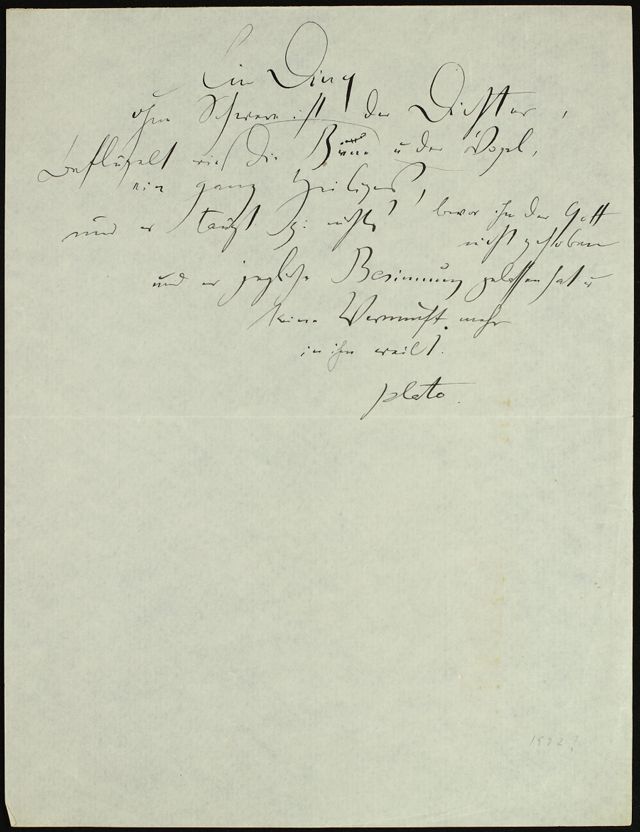 Ein Ding
ohne Schwere ist der Dichter,
beflügelt wie die Biene u der Vogel,
ein ganz Heiliges,
und er taugt zu nichts, bevor ihn der Gott
nicht gehoben
und er jegliche Besinnung gelassen hat u
keine Vernunft mehr
in ihm weilt.
Plato.